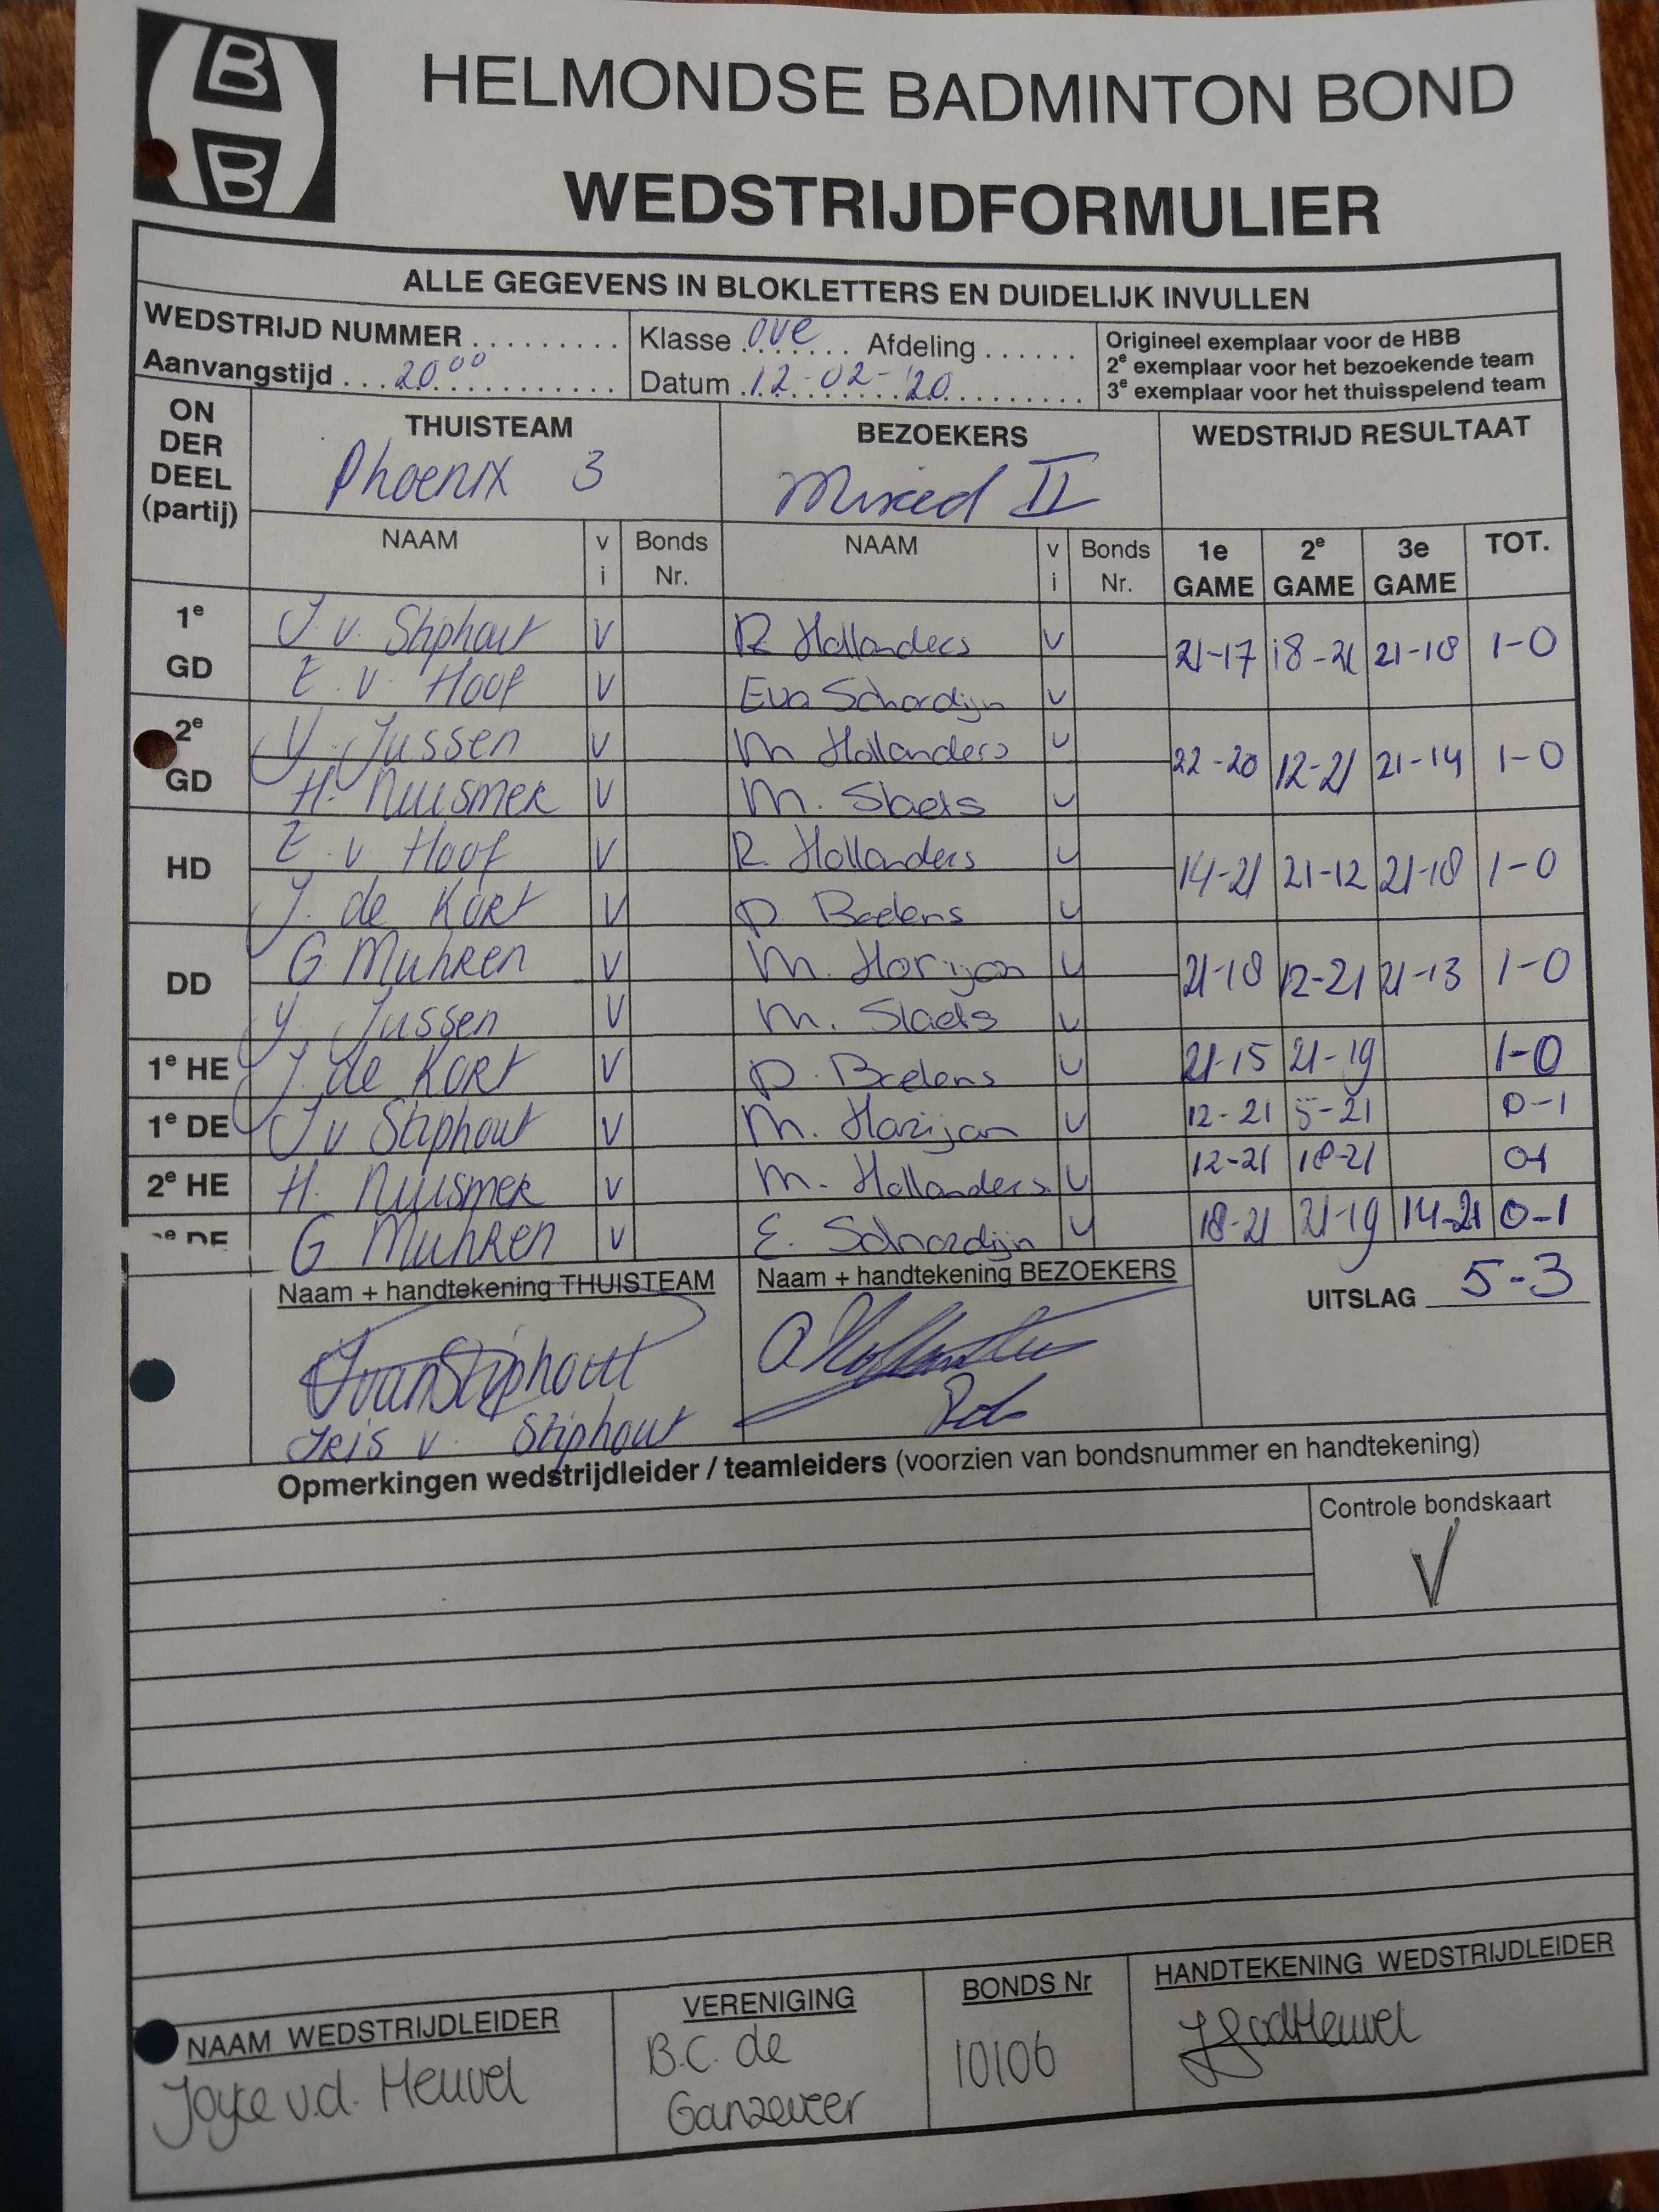 B
B
HELMONDSE BADMINTON BOND
WEDSTRIJDFORMULIER
ALLE GEGEVENS IN BLOKLETTERS EN DUIDELIJK INVULLEN
WEDSTRIJD NUMMER ......... Klasse OVE Afdeling ...... Origineel exemplaar voor de HBB
Aanvangstijd 20.00 Datum 12-02-'20 2e exemplaar voor het bezoekende team
3e exemplaar voor het thuisspelend team
ON DER DEEL (partij) THUISTEAM BEZOEKERS WEDSTRIJD RESULTAAT
Phoenix 3 Mixed II
NAAM v i Bonds Nr. NAAM v i Bonds Nr. 1e GAME 2e GAME 3e GAME TOT.
1e GD J. v. Stiphout V R Hollanders V 21-17 18-21 21-18 1-0
E. v. Hoof V Eva Schordijn V
2e GD Y. Jussen V M Hollanders V 22-20 12-21 21-14 1-0
H. Nuismer V M. Slaets V
HD E. v Hoof V R. Hollanders V 14-21 21-12 21-18 1-0
J. de Kort V P. Beelens V
DD G Muhren V M. Harijan V 21-18 12-21 21-13 1-0
Y. Jussen V M. Slaets V
1e HE J. de Kort V P. Beelens V 21-15 21-19 1-0
1e DE J v Stiphout V M. Harijan V 12-21 5-21 0-1
2e HE H. Nuismer V M. Hollanders V 12-21 18-21 0-1
2e DE G Muhren V E. Schordijn V 18-21 21-19 14-21 0-1
Naam + handtekening THUISTEAM Naam + handtekening BEZOEKERS UITSLAG 5-3
JvanStiphout
Iris v. Stiphout
Opmerkingen wedstrijdleider / teamleiders (voorzien van bondsnummer en handtekening)
Controle bondskaart
V
NAAM WEDSTRIJDLEIDER VERENIGING BONDS Nr HANDTEKENING WEDSTRIJDLEIDER
Joyce v.d. Heuvel B.C. de 10106
Ganzeveer